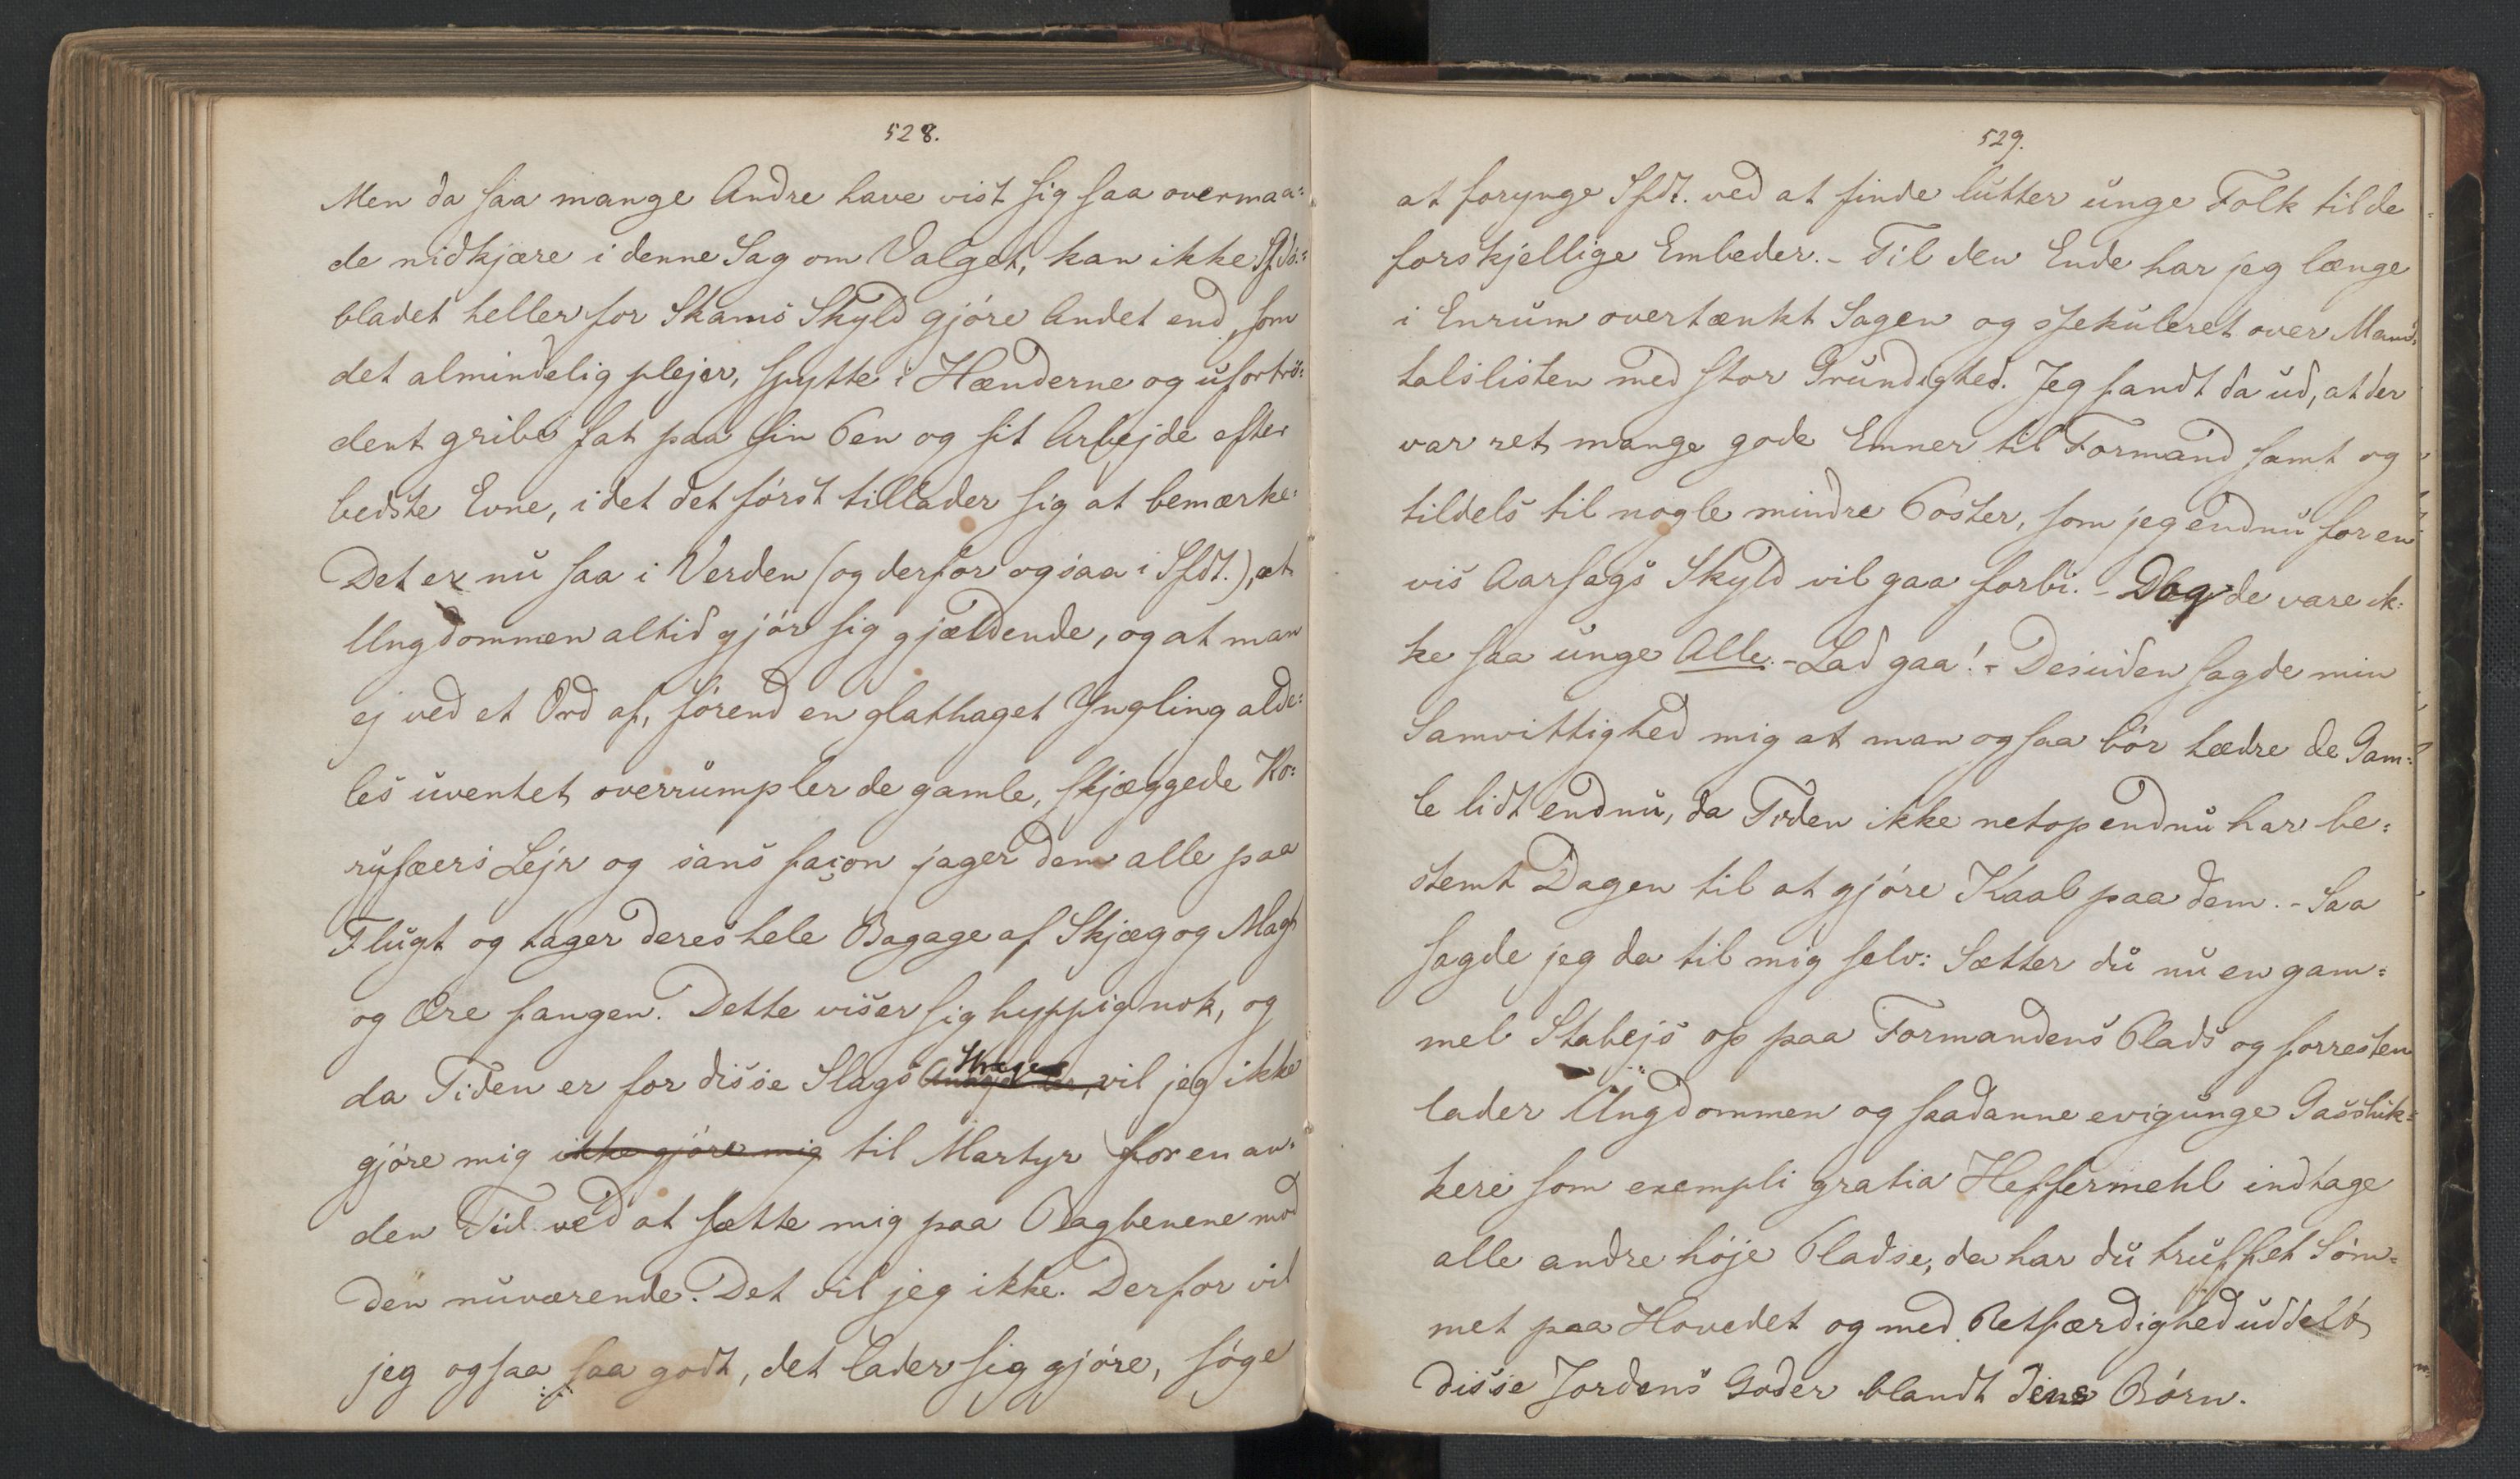 528.
Men da saa mange Andre have vist sig saa overmaa:
de nidkjære i denne Sag om Valget, kan ikke Sfds.:
bladet heller for Skams Skyld gjøre Andet end, som
det almindelig plejer, spytte i Hænderne og ufortrø:
dent gribe fat paa sin Pen og sit Arbejde efter
bedste Evne, idet det først tillader sig at bemærke:
Det er nu saa i Verden (og derfor ogsaa i Sfdt.), at
Ungdommen altid gjør sig gjældende, og at man
ej ved et Ord af, førend en glathaget Yngling alde:
les uventet overrumpler de gamle, skjæggede Ko:
ryfæers Lejr og sans façon jager dem alle paa
Flugt og tager deres hele Bagage af Skjæg og Magt
og Ære fangen. Dette viser sig hyppig nok, og
da Tiden er for disse Slags vil jeg ikke
gjøre mig ikke gjøre mig til Martyr for en an:
den Tid ved at sætte mig paa Bagbenene mod
den nuværende. Det vil jeg ikke. Derfor vil
jeg ogsaa saa godt, det lader sig gjøre, søge
529.
at forynge Sfdt. ved at finde lutter unge Folk til de
forskjellige Embeder. - Til den Ende har jeg længe
i Enrum overtænkt Sagen og spekuleret over Mand:
talslisten med stor Grundighed. Jeg fandt da ud, at der
var ret mange gode Emner til Formand samt og
tildels til nogle mindre Poster, som jeg endnu for en
vis Aarsags Skyld vil gaa forbi. - Dog de vare ik:
ke saa unge Alle. - Lad gaa! - Desuden sagde min
Samvittighed mig at man ogsaa bør hædre de Gam:
le lidt endnu, da Tiden ikke netop endnu har be:
stemt Dagen til at gjøre Kaal paa dem. - Saa
sagde jeg da til mig selv: Sætter du nu en gam:
mel Stabejs op paa Formandens Plads og forresten
lader Ungdommen og saadanne evigunge Gasstik:
kere som exempli gratia Heffermehl indtage
alle andre høje Pladse, da har du truffet Søm:
met paa Hovedet og med Retfærdighed uddelt
disse Jordens Goder blandt dens Børn.